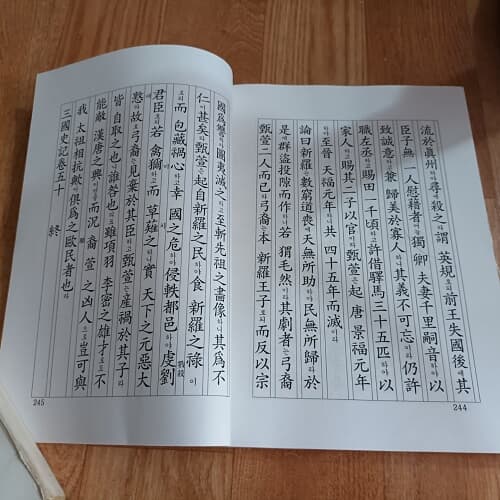 流於眞州하야尋予殺之라謂英規호되前王失國後에其
臣子無一人慰藉者어늘獨卿夫妻千里嗣音하야以
致誠意하고兼歸美於寡人하니其義不可忘이라仍許
職左丞하고賜田一千頃하고許借驛馬三十五匹하야以
家人하고賜其二子以官이러라甄萱은起唐景福元年
하야至晉天福元年하니共四十五年而滅이라
論曰新羅는數窮道喪에天無所助하야民無所歸라於
是에群盜投隙而作하니若猬毛然이라其劇者는弓裔
甄萱二人而已라弓裔는本新羅王子로되而反以宗
244
國爲讐하야圖夷滅之하고至斬先祖之畵像하니其爲不
仁이甚矣라甄萱은起自新羅之民하야食新羅之祿이
로되而包藏禍心하야幸國之危하야侵軼都邑하야虔劉
君臣호되若禽獮而草薙之하니實天下之元惡大
憝라故로弓裔는見棄於其臣하고甄萱은産禍於其子하니
皆自取之也라誰咎也리오雖項羽李密之雄才로도不
能敵漢唐之興이어늘而況裔萱之凶人으로豈可與
我太祖相抗歟아俱爲之歐民者也라
三國史記卷五十 終
245